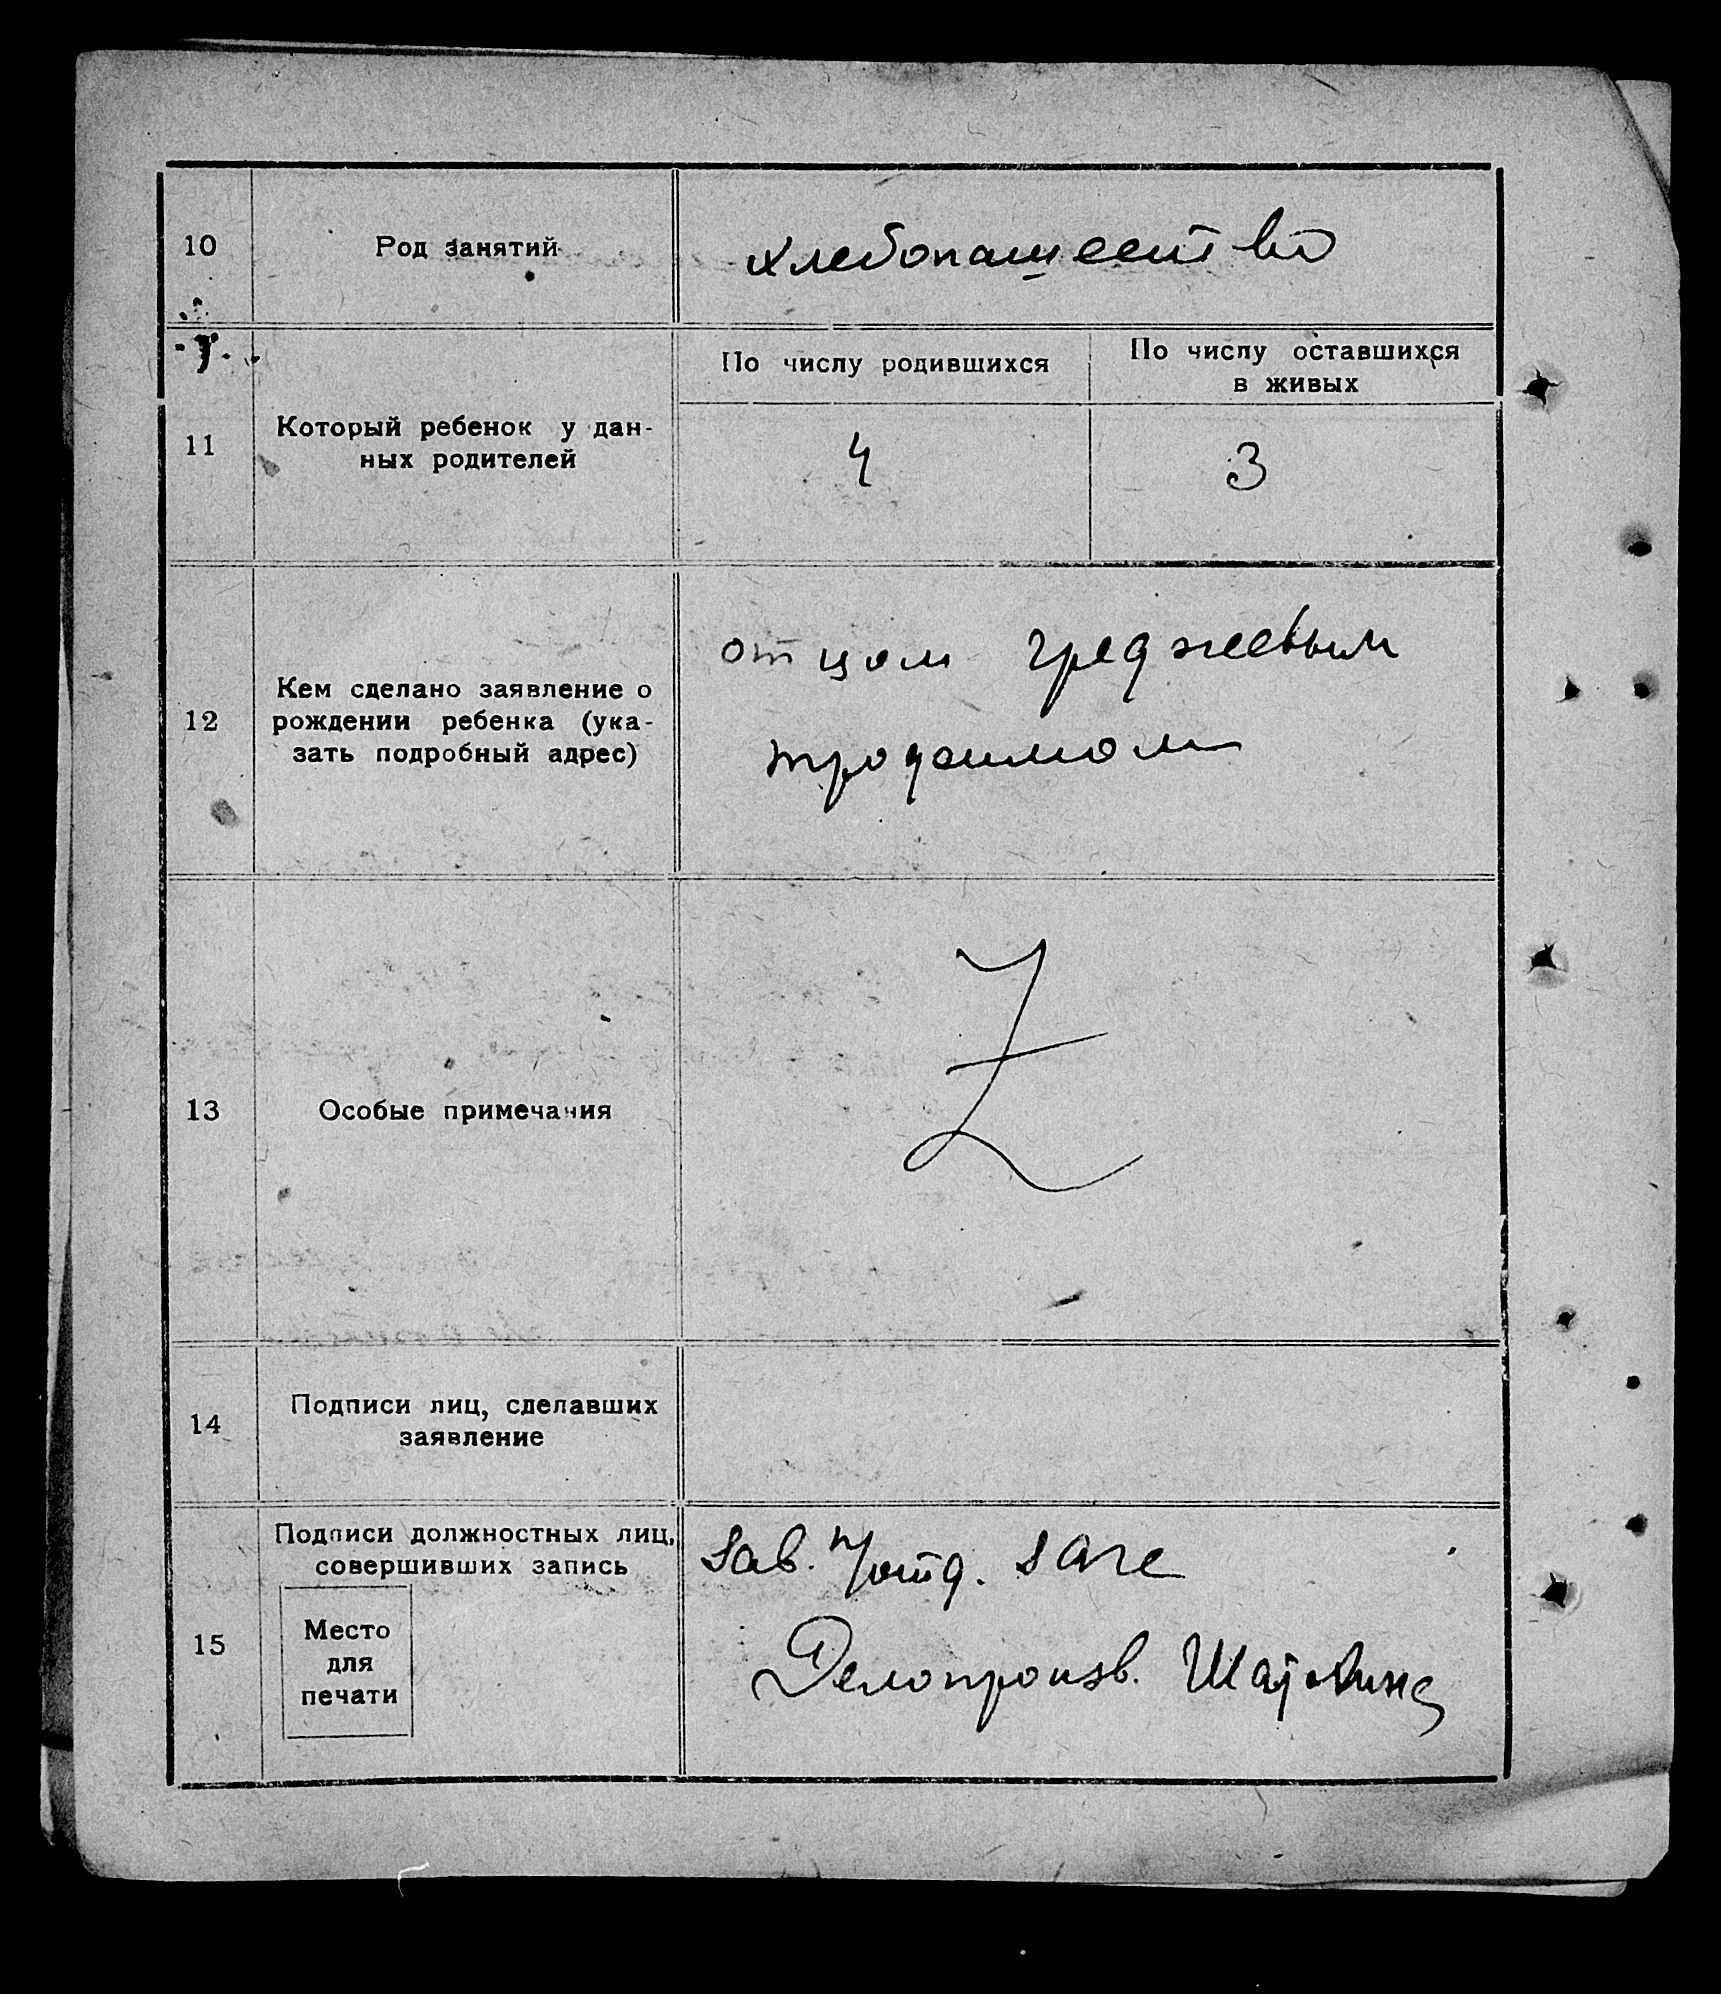 10
Род занятий
хлебопашеество
11
Который ребенок у дан-
ных родителей
По числу родившихся
По числу оставшихся
в живых
4
3
12
Кем сделано заявление о
рождении ребенка (ука-
зать подробный адрес)
отцом Греджевым
трофимом
13
Особые примечания
Z
14
Подписи лиц, сделавших
заявление
15
Подписи должностных лиц,
совершивших запись
Место
для
печати
Зав. п/отд. загс
Делопроизв.